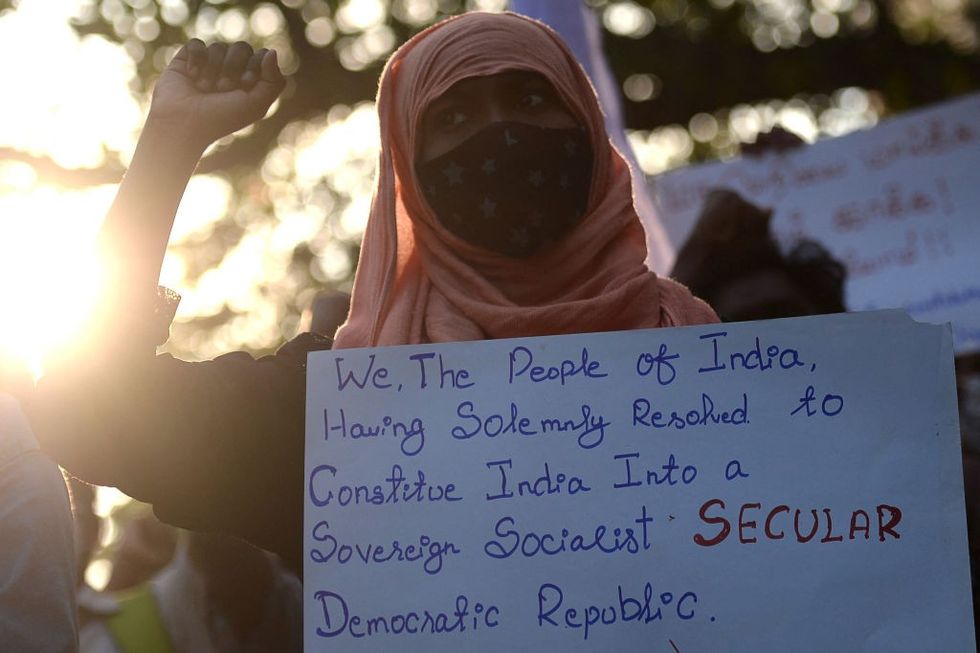 We, The People of India,
Having Solemnly Resolved to
Constitue India Into a
Sovereign Socialist SECULAR
Democratic Republic.